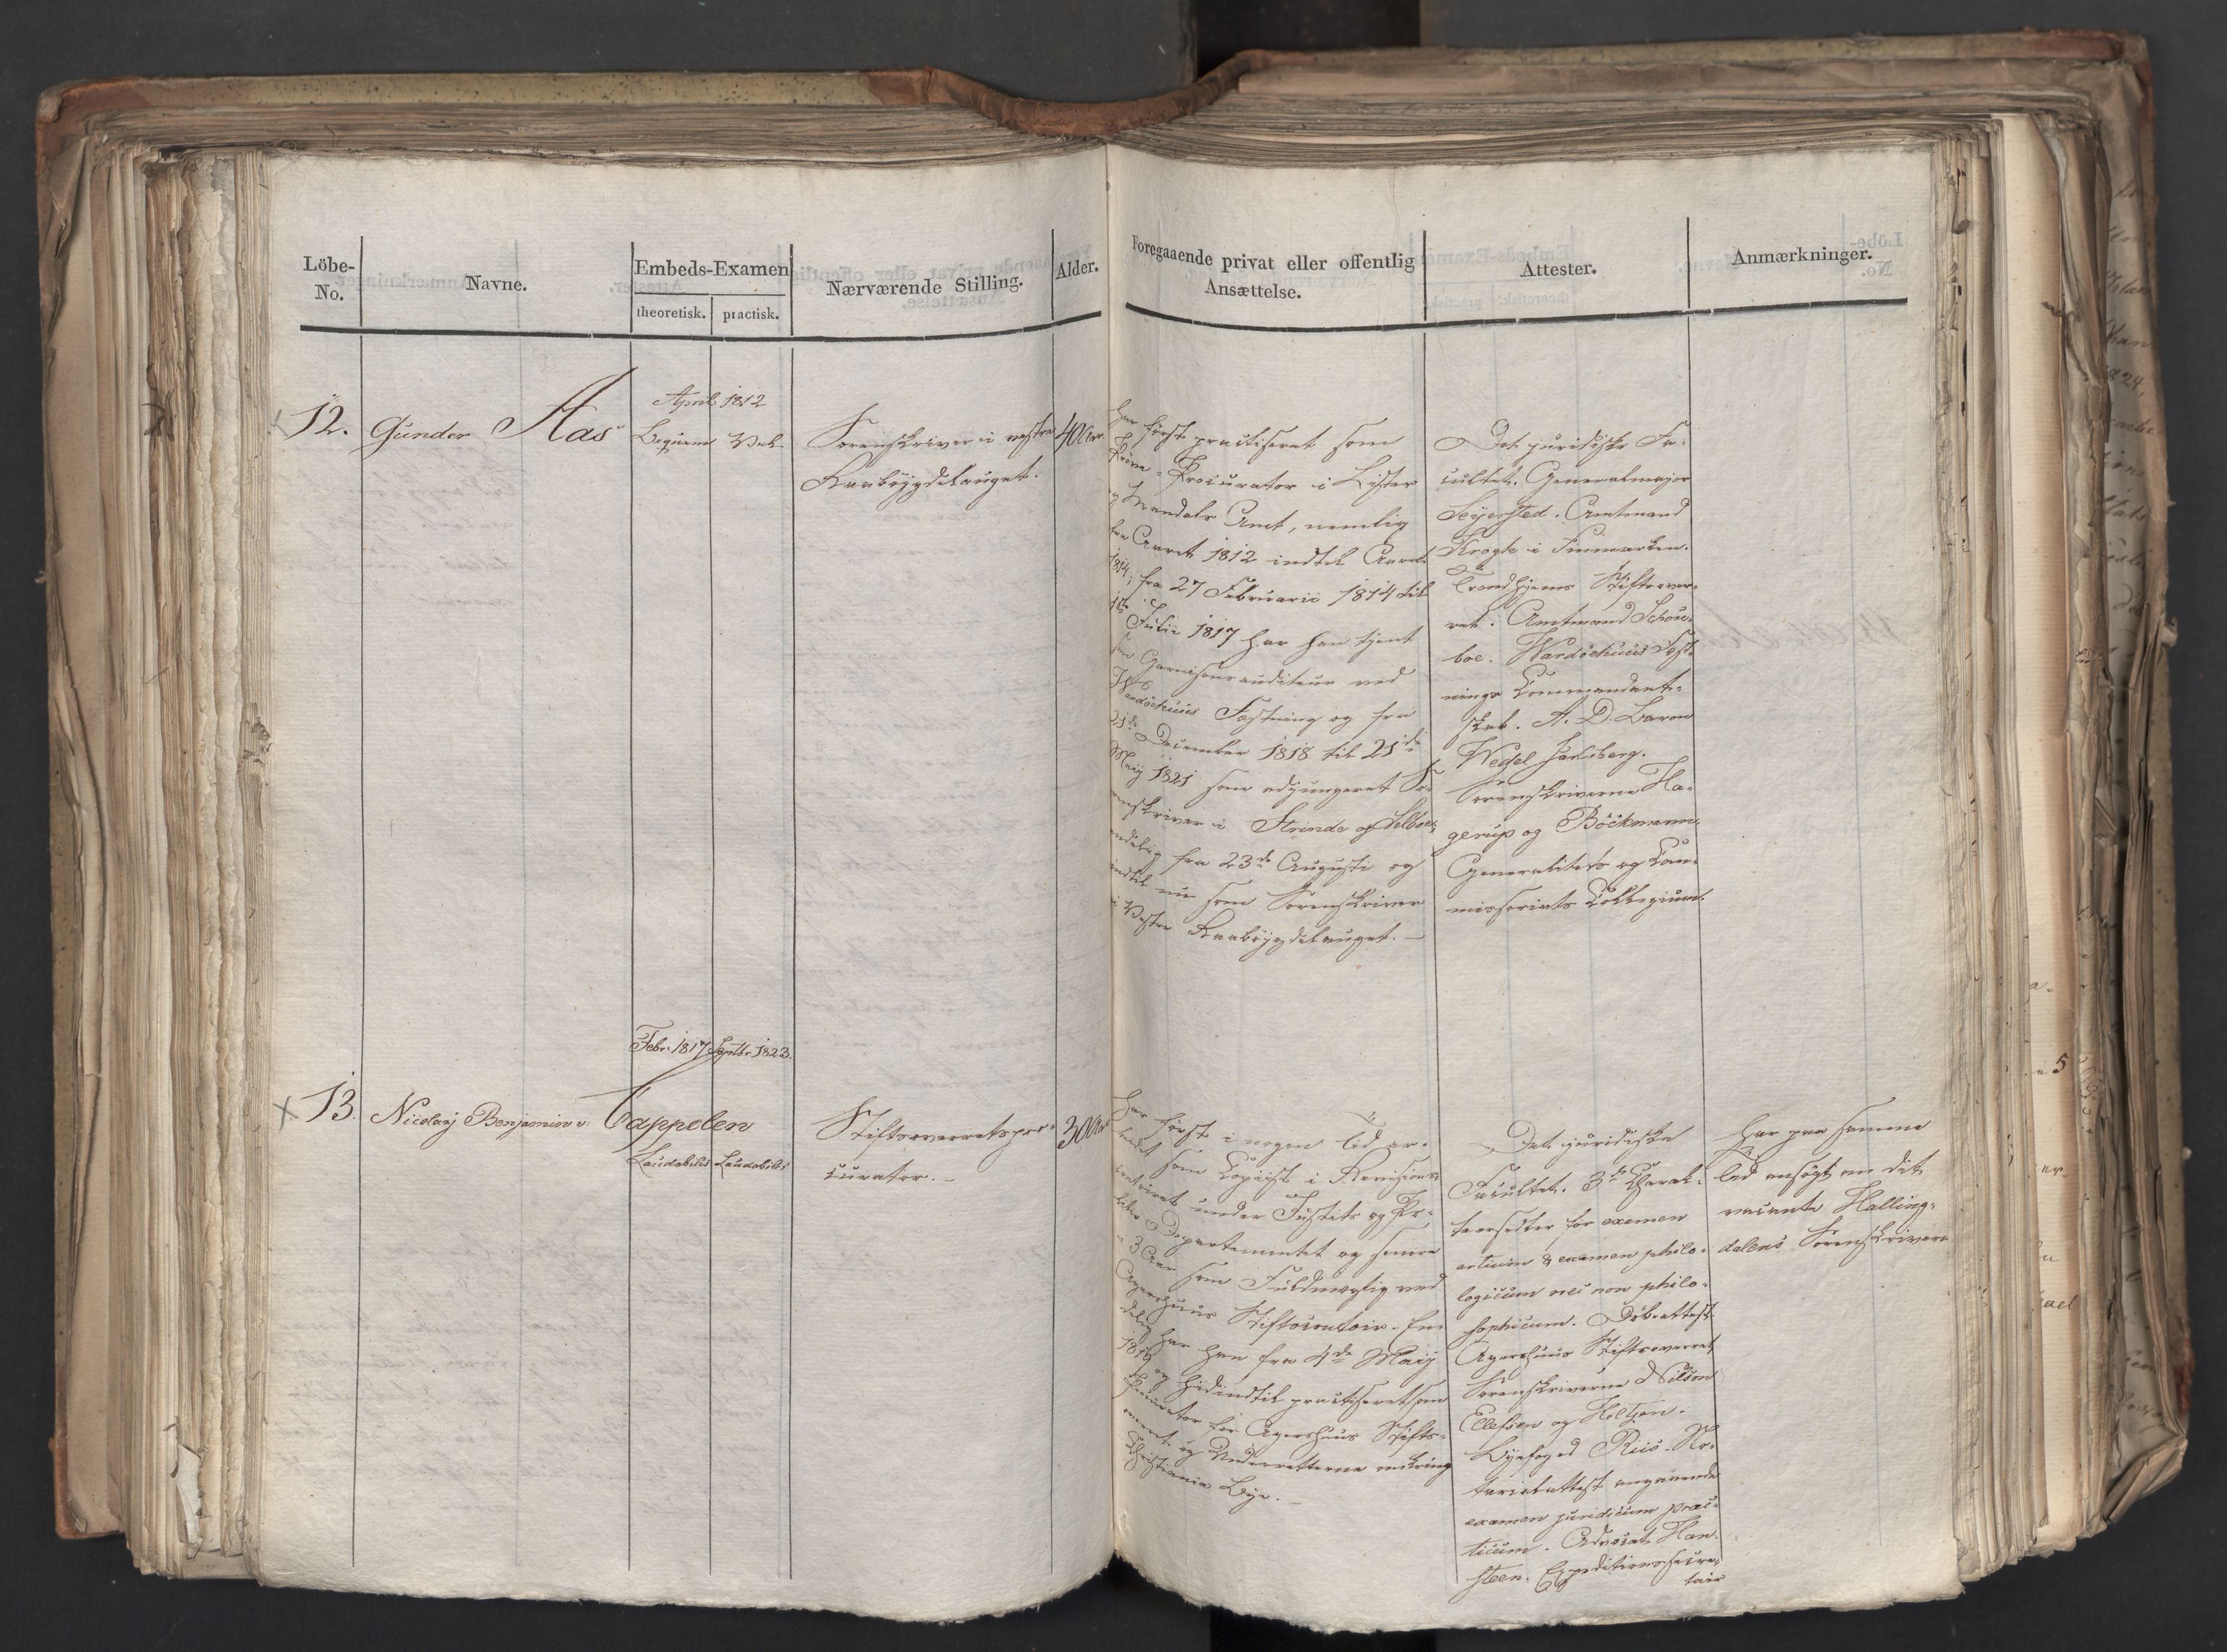 Löbe-No.
Navne.
Embeds-Examen
theoretisk.
practisk.
Nærværende Stilling.
Alder.
Foregaaende privat eller offentlig
Ansættelse.
Attester.
Anmærkninger.
12.
Gunder Aas
April 1812
Beqvem Vel
Sorenskriver i vestre
Raabÿgdelauget.
40 Aar.
Har først practiseret som
Prøve-Procurator i Lister
og Mandals Amt, nemlig
fra Aaret 1812 indtil Aaret
1814; fra 27 Februarii 1814 til
Julii 1817 har han tjent
som Garnisonsauditeur ved
Wardöehuus Fæstning og fra
21de December 1818 til 21de
Maij 1821 som adjungeret So-
renskriver i Strinde og Selboe,
endelig fra 23de Augusti og
indtil nu som Sorenskriver
i Vestre Raabÿgdelauget. —
Det juridiske Fa-
cultet. Generalmajor
Seyersted. Amtmand
Krogh i Finmarken.
Trondhjems Stiftsover-
ret. Amtmand Schou-
boe. Wardöehuus Fæst-
nings Commandant-
skab. A. D. Baron
Wedel Jarlsberg.
Sorenskriverne Ha-
gerup og Böckmann.
Generalitets og Com-
missariats Collegium.
Febr. 1817 Septbr. 1823.
x 13.
Nicolaij Benjamin v. Cappelen
Laudabilis Laudabilis
Stiftsoverretspro-
curator. —
30 Aar
Har først i nogen Tid ar-
beidet som Copiist i Revisions-
contoiret under Justits og Po-
litie Departementet og senere
i 3 Aar som Fuldmægtig ved
Agershuus Stiftscontoir. En-
delig har han fra 4de Maij
1819 og hidindtil practiseret som
Procurator for Agershuus Stifts-
overret og Underretterne omkring
Christiania Bye. —
Det juridiske
Facultet. 3de Charac-
teersedler for examen
artium & examen philo-
logicum nec non philo-
sophicum. Döbeattest.
Agershuus Stiftsoverret
Sorenskriverne Nilson
Ellefsen og Holtzen.
Byefoged Riis. No-
tarialattest angaaende
examen juridicum prac-
ticum. Advocat Han-
steen. Expeditionssecre-
tair
Har paa samme
Tid ansøgt om det
vacante Halling-
dalens Sorenskriverie